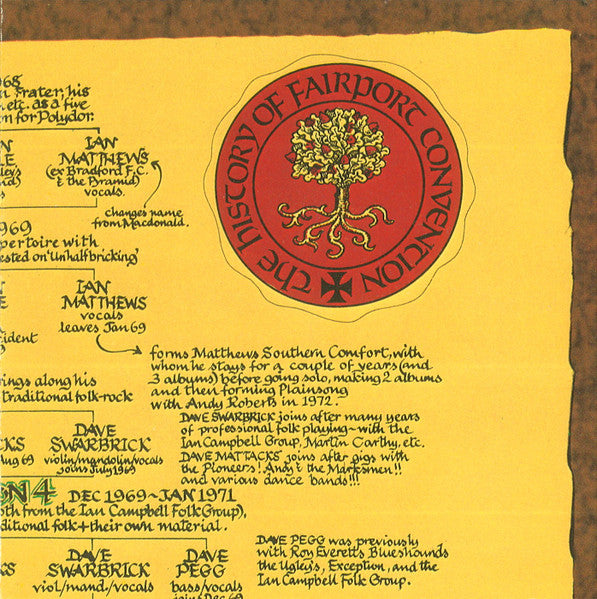 THE HISTORY OF FAIRPORT CONVENTION
1968
Frater, his
etc. as a five
for Polydor.
IAN
MATTHEWS
(ex Bradford F.C.
& the Pyramid)
vocals.
changes name
from Macdonald.
1969
repertoire with
'Unhalfbricking'
IAN
MATTHEWS
vocals
leaves Jan 69
forms Matthews Southern Comfort, with
whom he stays for a couple of years (and
3 albums) before going solo, making 2 albums
and then forming Plainsong
with Andy Roberts in 1972.
along his
traditional folk-rock
DAVE SWARBRICK joins after many years
of professional folk playing ~ with the
Ian Campbell Group, Martin Carthy, etc.
DAVE MATTACKS joins after gigs with
the Pioneers! Andy & the Marksmen!!
and various dance bands!!!
DAVE
SWARBRICK
violin/mandolin/vocals
joins July 1969
Aug 69
4 DEC 1969 ~ JAN 1971
from the Ian Campbell Folk Group),
folk + their own material.
DAVE PEGG was previously
with Roy Everett's Blueshounds
the Ugly's, Exception, and the
Ian Campbell Folk Group.
DAVE
SWARBRICK
viol/mand/vocals
DAVE
PEGG
bass/vocals
joins Dec 69